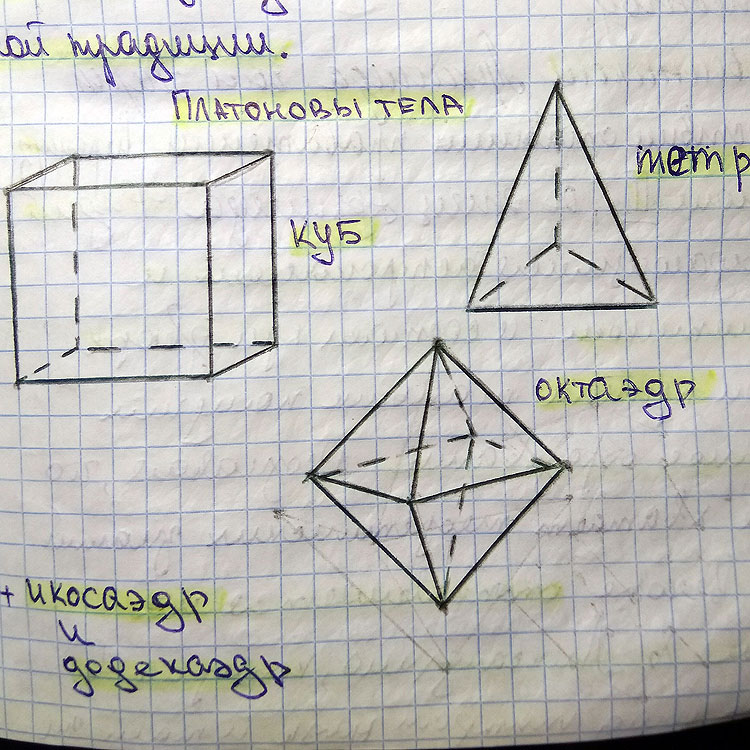 ой традиции.
ПЛАТОНОВЫ ТЕЛА
тетр
куб
октаэдр
+ икосаэдр
и
додекаэдр